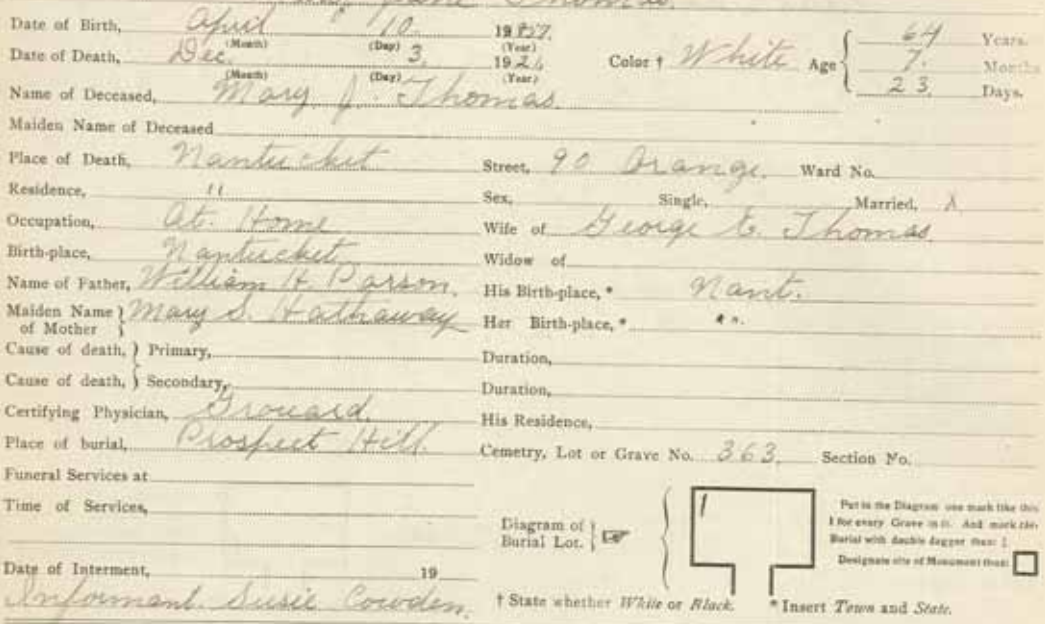 Jane Thomas.
Date of Birth, April 10. 1957.
(Month) (Day) (Year)
Date of Death, Dec. 3, 1921 Color † White Age { 64 Years. 7. Months 23, Days.
(Month) (Day) (Year)
Name of Deceased, Mary J. Thomas.
Maiden Name of Deceased
Place of Death, Nantucket Street, 90 Orange. Ward No.
Residence, " Sex, Single, Married, X
Occupation, At Home Wife of George E. Thomas.
Birth-place, Nantucket Widow of
Name of Father, William H. Parson. His Birth-place, * Nant.
Maiden Name of Mother } Mary S. Hathaway Her Birth-place, * "
Cause of death, } Primary, Duration,
Cause of death, } Secondary, Duration,
Certifying Physician, Grouard. His Residence,
Place of burial, Prospect Hill. Cemetry, Lot or Grave No. 363. Section No.
Funeral Services at
Time of Services,
Diagram of Burial Lot. } ☞ { 1
Put in the Diagram one mark like this
1 for every Grave in it. And mark this
Burial with double dagger thus: ‡
Designate site of Monument thus: □
Date of Interment, 19
Informant. Susie Cowden. † State whether White or Black. * Insert Town and State.